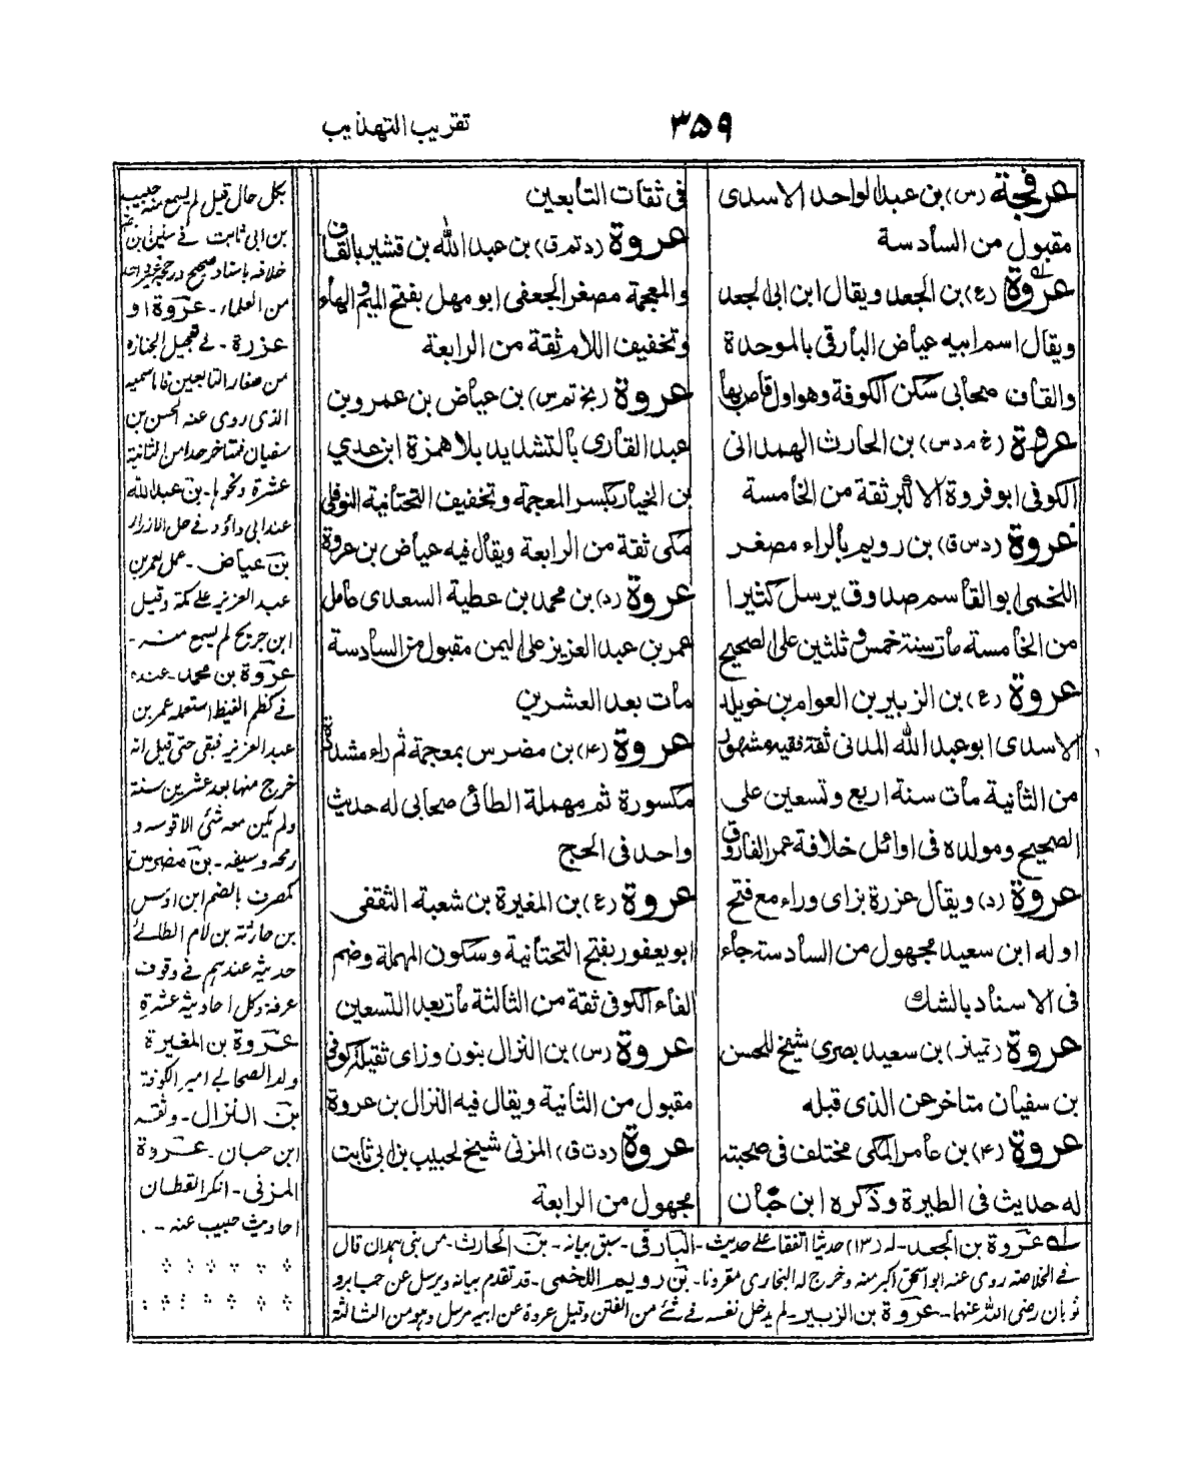 ۳۵۹
تقريب التهذيب
عرفجة (رس) بن عبد الواحد الاسدى
مقبول من السادسة
عروة (ع) بن الجعد ويقال ابن ابى الجعد
ويقال اسم ابيه عياض البارقى بالموحدة
والقاف صحابى سكن الكوفة وهو اول قاض بها
عروة (غ مد س) بن الحارث الهمدانى
الكوفى ابو فروة الاكبر ثقة من الخامسة
عروة (د س ق) بن رويم بالراء مصغر
اللخمى ابو القاسم صدوق يرسل كثيرا
من الخامسة مات سنة خمس وثلثين على الصحيح
عروة (ع) بن الزبير بن العوام بن خويلد
الاسدى ابو عبد الله المدنى ثقة فقيه مشهور
من الثانية مات سنة اربع وتسعين على
الصحيح ومولده فى اوائل خلافة عمر الفاروق
عروة (د) ويقال عزرة بزاى وراء مع فتح
اوله ابن سعيد مجهول من السادسة جاء
فى الاسناد بالشك
عروة (تميز) بن سعيد بصرى شيخ للحسن
بن سفيان متاخر عن الذى قبله
عروة (۴) بن عامر المكى مختلف فى صحبته
له حديث فى الطيرة وذكره ابن حبان
فى ثقات التابعين
عروة (د تم ق) بن عبد الله بن قشير بالقاف
والمعجمة مصغر الجعفى ابو مهل بفتح الميم والهاء
وتخفيف اللام ثقة من الرابعة
عروة (بخ تم س) بن عياض بن عمرو بن
عبد القارى بالتشديد بلا همزة ابن عدي
بن الخيار بكسر المعجمة وتخفيف التحتانية النوفلى
مكى ثقة من الرابعة ويقال فيه عياض بن عروة
عروة (د) بن محمد بن عطية السعدى عامل
عمر بن عبد العزيز على اليمن مقبول من السادسة
مات بعد العشرين
عروة (۴) بن مضرس بمعجمة ثم راء مشددة
مكسورة ثم مهملة الطائى صحابى له حديث
واحد فى الحج
عروة (ع) بن المغيرة بن شعبة الثقفى
ابو يعفور بفتح التحتانية وسكون المهملة وضم
الفاء الكوفى ثقة من الثالثة مات بعد التسعين
عروة (س) بن النزال بنون وزاى ثقيلة كوفى
مقبول من الثانية ويقال فيه النزال بن عروة
عروة (د ت ق) المزنى شيخ لحبيب بن ابى ثابت
مجهول من الرابعة
بكل حال قيل لم يسمع منه حبيب
بن ابى ثابت فى سنين بن
خلافه باسناد صحيح
من العلماء - عروة او
عزرة - فى تعجيل الجنازة
من صغار التابعين فاما سميه
الذى روى عنه الحسن بن
سفيان فمتاخر جدا من الثانية
عشرة ونحوها - بن عبد الله
عند ابى داؤد فى حل الازرار
بن عياض - عمل لعمر بن
عبد العزيز على مكة وقيل
ابن جريج لم يسمع منه -
عروة بن محمد - عنده
فى كظم الغيظ استعمله عمر بن
عبد العزيز فبقى حتى قيل انه
خرج منها بعد عشرين سنة
ولم يكن معه شئ الا قوسه و
رمحه وسيفه - بن مضرس
كمصرف بالضم ابن اوس
بن حارثة بن لام الطائى
حديثه عندهم فى وقوف
عرفة وكل احاديثه عشرة
عروة بن المغيرة
ولد الصحابى امير الكوفة
بن النزال - وثقه
ابن حبان - عروة
المزنى - انكر القطان
احاديث حبيب عنه - .
له عروة بن الجعد - له (۱۳) حديثا اتفقا على حديث - البارقى - سبق بيانه - بن الحارث - من بنى همدان قال
فى الخلاصة روى عنه ابو اسحق اكبر منه وخرج له البخارى مقرونا - بن رويم اللخمى - قد تقدم بيانه ويرسل عن جابر و
ثوبان رضى الله عنهما - عروة بن الزبير - لم يدخل نفسه فى شئ من الفتن وقيل عروة عن ابيه مرسل وهو من الثالثة